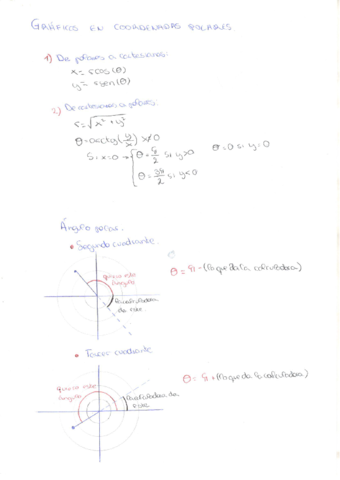 GRÁFICOS EN COORDENADAS POLARES
1) De polares a cartesianas:
x = r cos(θ)
y = r sen(θ)
2) De cartesianas a polares:
r = √x² + y²
θ = arctg(y/x) x≠0
Si x=0 → { θ = π/2 si y>0
θ = 3π/2 si y<0
θ = 0 si y=0
Ángulo polar.
• Segundo cuadrante.
quiero este ángulo
la calculadora da este
θ = π - (lo que da la calculadora)
• Tercer cuadrante
quiero este ángulo
la calculadora da este
θ = π + (lo que da la calculadora)